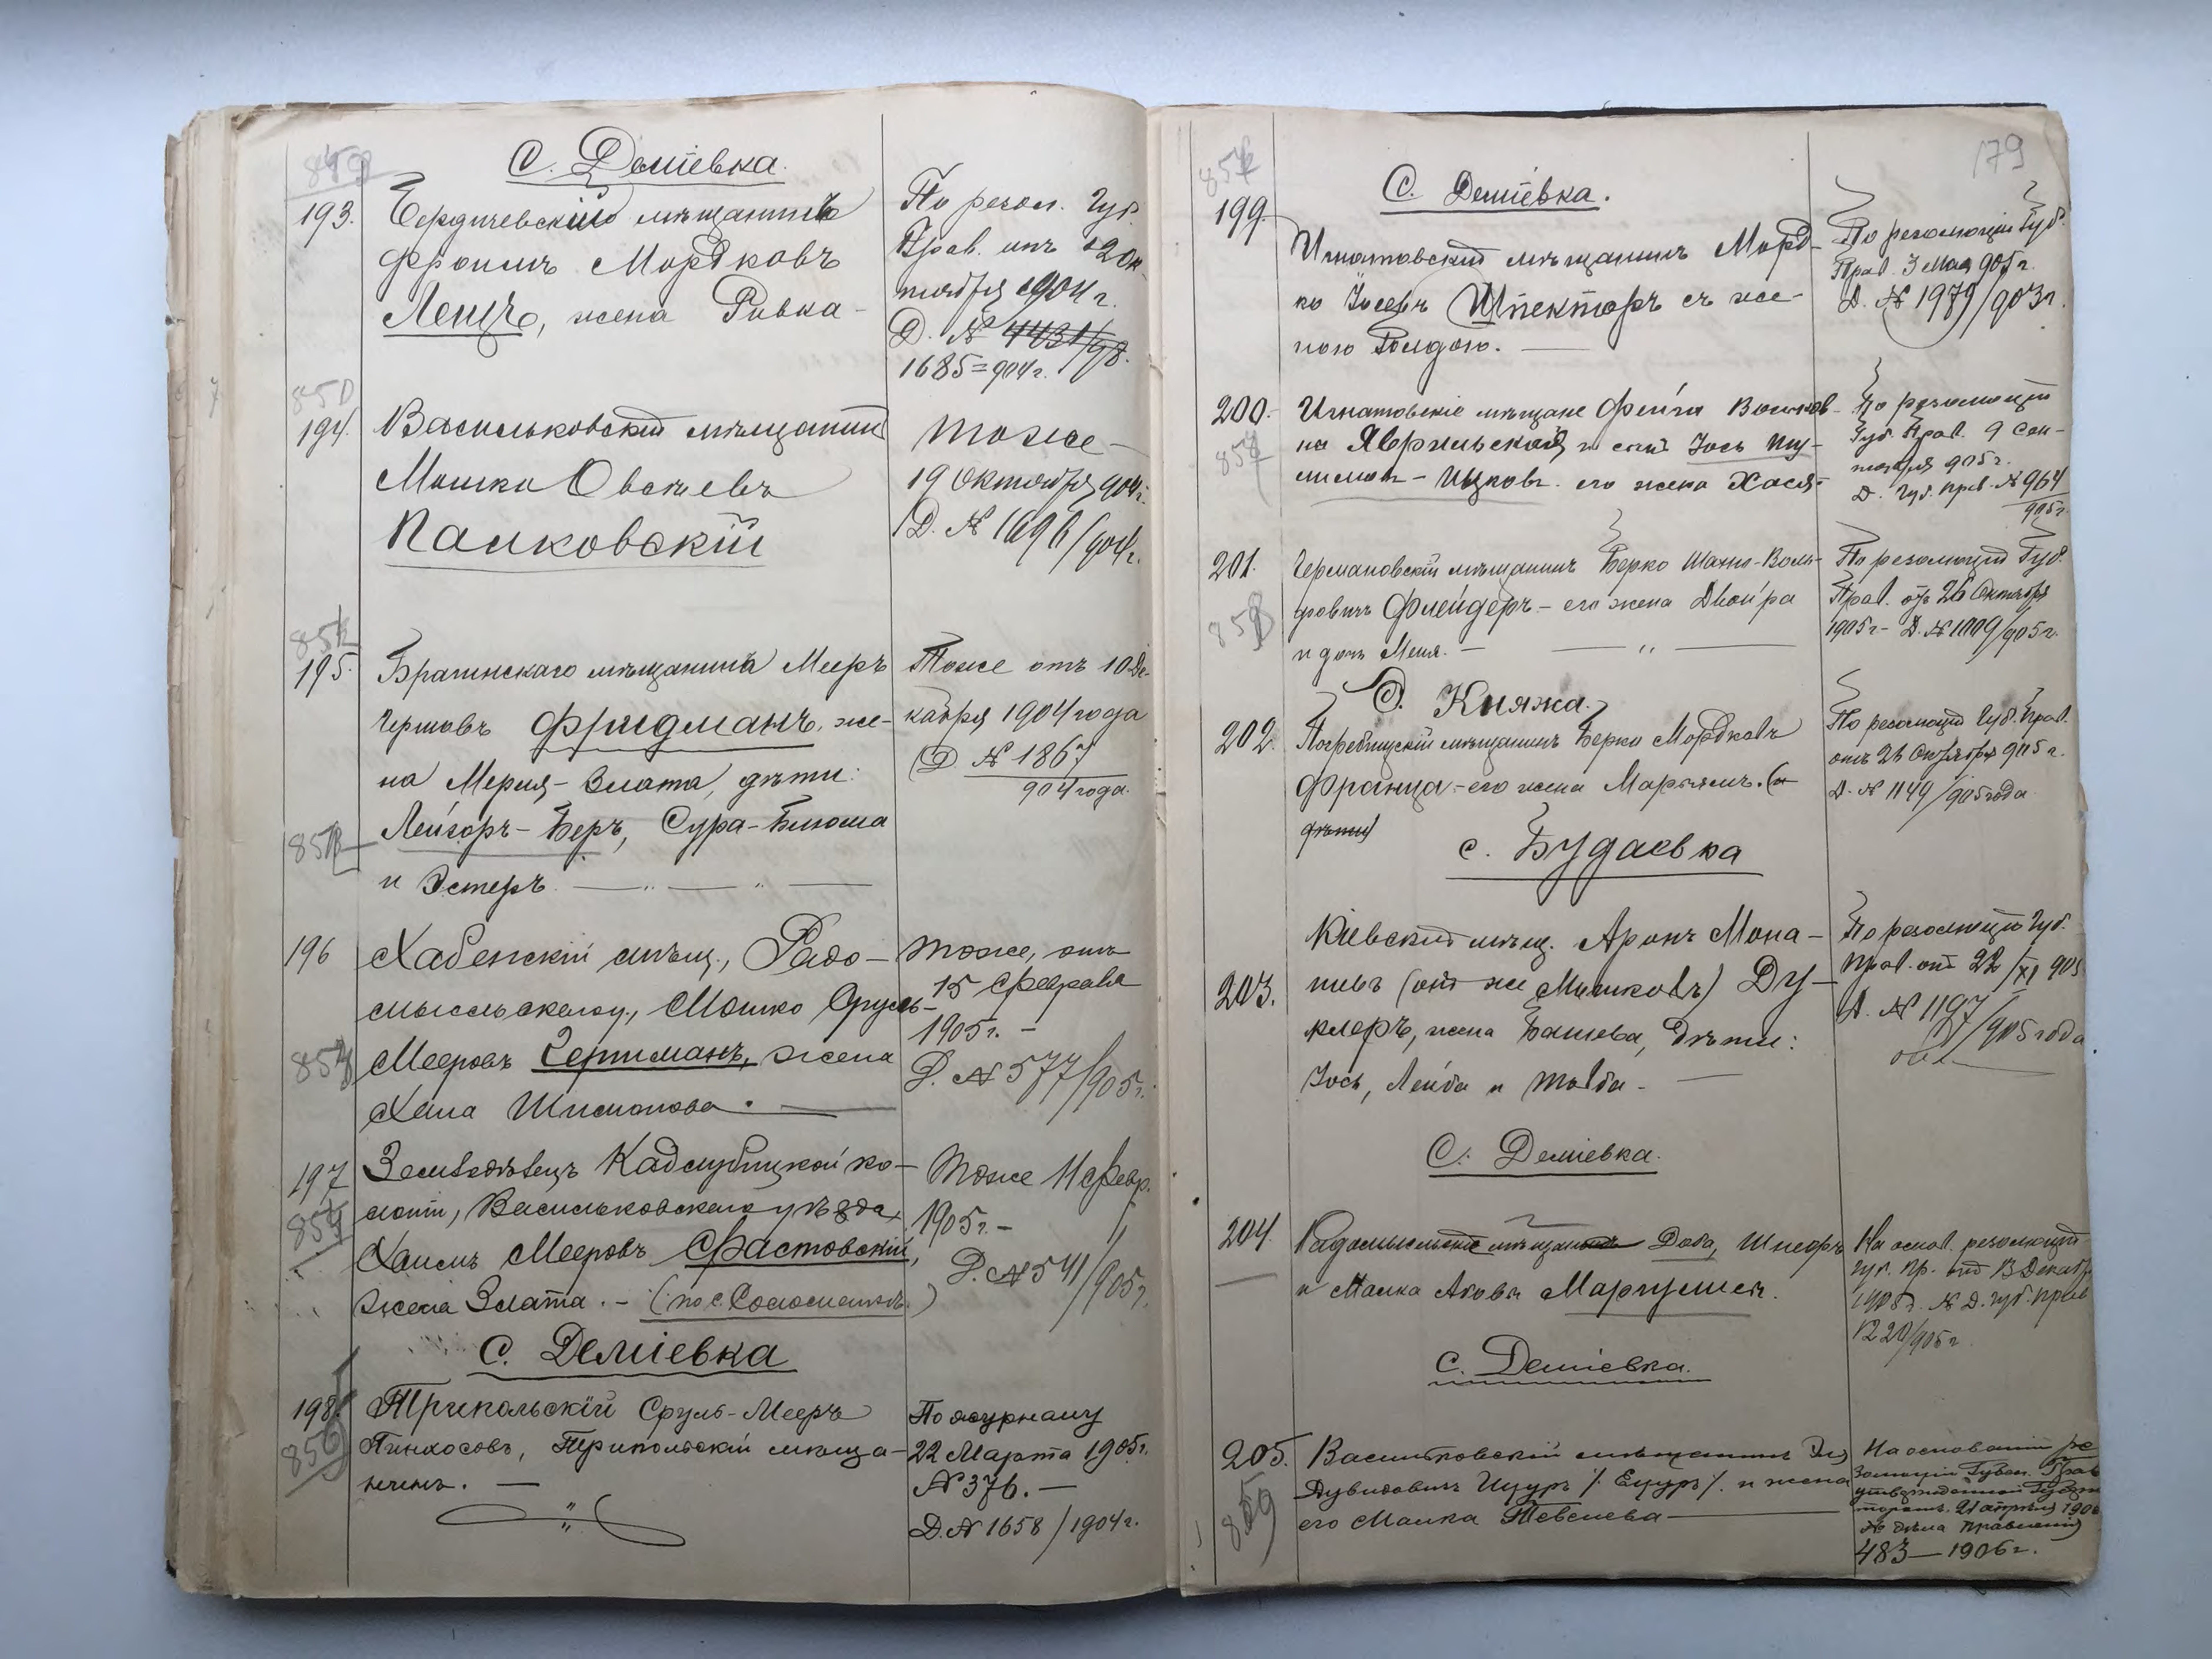 С. Деміевка.
193. Бердичевскій мѣщанинъ
Фроимъ Мордковъ
Ленцъ, жена Ривка-
По резол. Губ.
Прав. отъ 20 ок-
тября 1904 г.
Д. № 4431/98.
1685=904 г.
850
194. Васильковскій мѣщанин
Мошко Овсѣевъ
Палковскій
тоже-
19 Октября 904 г.
Д. № 1696/904 г.
195. Брагинскаго мѣщанина Мееръ
Гершовъ Фридманъ, же-
на Мерия-Злата, дѣти:
Лейзоръ-Беръ, Сура-Блюма
и Эстеръ
Тоже отъ 10 Де-
кабря 1904 года
Д № 1867
904 года.
196 Хабенскій мѣщ., Радо-
мысльскаго у., Мошко Сруль-
Мееровъ Гертманъ, жена
Хана Шимонова.
тоже, отъ
15 Февраля
1905 г. -
Д. № 577/905 г.
197 Земледѣлецъ Кадлубицкой ко-
лоніи, Васильковскаго уѣзда,
Хаимъ Мееровъ Фастовскій,
жена Злата. - (по с. Соломенкѣ)
Тоже 11 Февр.
1905 г. -
Д. № 541/905 г.
С. Деміевка
198. Трипольскій Сруль-Мееръ
Пинхосовъ, Трипольскій мѣща-
нинъ. -
По журналу
22 Марта 1905 г.
№ 376. -
Д. № 1658/1904 г.
179
С. Деміевка.
199. Игнатовскій мѣщанинъ Морд-
ко Іосевъ Шпекторъ съ же-
ною Голдою.
По резолюціи Губ.
Прав. 3 Мая 905 г.
Д. № 1979/903 г.
200. Игнатовскіе мѣщане Фейга Вольков-
на и сынъ Іось
Ицковъ. его жена Хася-
По резолюціи
Губ. Прав. 9 Сен-
тября 905 г.
Д. Губ. Прав. № 964
905 г.
201. Германовскій мѣщанинъ Берко Шахно-Воль-
фовичъ Флейдеръ - его жена Двойра
и дочь Меня. -
По резолюціи Губ.
Прав. отъ 26 Октября
1905 г - Д. № 1009/905 г.
С. Княжа.
202. Погребищскій мѣщанинъ Берко Мордковъ
Франца - его жена Марьямъ. (и
дѣти)
По резолюціи Губ. Прав.
отъ 26 Октября 905 г.
Д. № 1149/905 года
с. Будаевка
203. Кіевскій мѣщ. Аронъ Мона-
шевъ (онъ же Мошковъ) Ду-
клеръ, жена Башева, дѣти:
Іось, Лейба и Товба -
По резолюціи Губ.
Прав. отъ 22/XI 905
Д. № 1197/905 года
С. Деміевка.
204. Радомысльскіе мѣщане Доба, Шнеоръ
и Малка Аговы Маргулисъ.
На основ. резолюціи
Губ. Пр. отъ 13 Декабр.
1905 г. № Д. Губ. Прав
1220/905 г
С. Деміевка.
205. Васильковскій мѣщанинъ Эля
Дувидовичъ Цуръ /. Ецуръ /. и жена
его Малка Тевелева
859
На основаніи ре
золюціи Губерн. Прав
утвержденной Губерна
торомъ 21 апрѣля 1906
№ дѣла Правленія
483-1906 г.